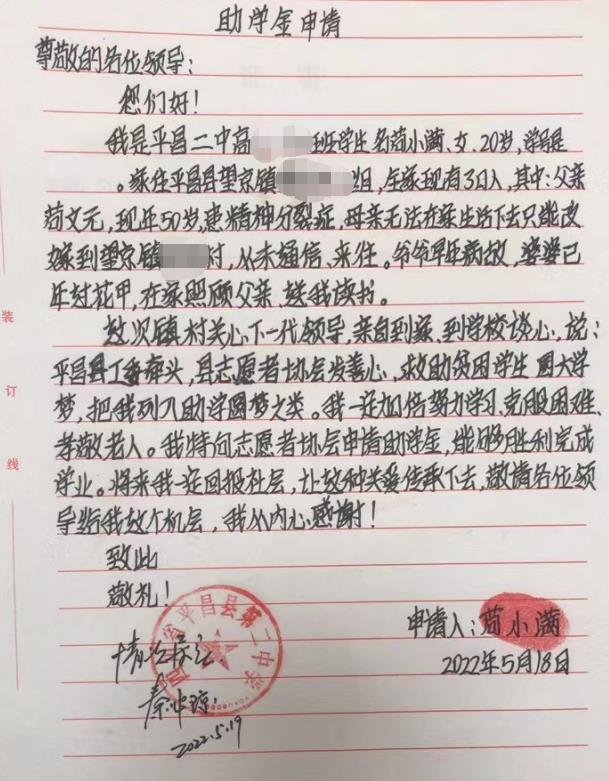 助学金申请
尊敬的各位领导:
您们好!
我是平昌二中高 班学生名苟小满、女、20岁,学号是
。家住平昌县望京镇 组,全家现有3口人,其中:父亲
苟文元,现年50岁,患精神分裂症,母亲无法在家生活下去只能改
嫁到望京镇 村,从未通信、来往。爷爷早年病故,婆婆已
年过花甲,在家照顾父亲、送我读书。
这次镇村关心下一代领导,亲自到家、到学校谈心,说:
平昌县 牵头,县志愿者协会发善心,救助贫困学生圆大学
梦,把我列入助学圆梦之类。我一定加倍努力学习、克服困难、
孝敬老人。我特向志愿者协会申请助学金,能够胜利完成
学业。将来我一定回报社会,让这种关爱传承下去,敬请各位领
导给我这个机会,我从内心感谢!
致此
敬礼!
申请人:苟小满
2022年5月18日
情况属实
秦 琼
2022.5.19
省平昌县第二中学
装
订
线